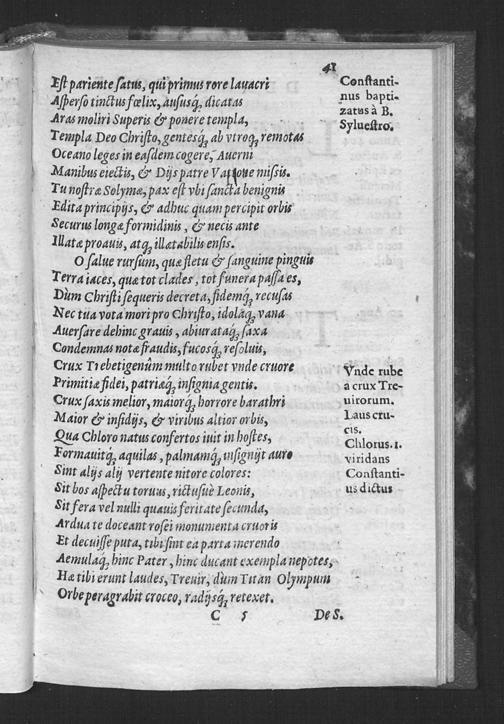 41
Est pariente satus, qui primus rore lauacri
Asperso tinctus fœlix, aususq́; dicatas
Aras moliri Superis & ponere templa,
Templa Deo Christo, gentesq́; ab vtroq; remotas
Oceano leges in easdem cogere, Auerni
Manibus eiectis, & Dijs patre missis.
Tu nostræ Solymæ, pax est vbi sancta benignis
Edita principijs, & adhuc quam percipit orbis
Securus longæ formidinis, & necis ante
Illatæ proauis, atq; illætabilis ensis.
O salue rursum, quæ fletu & sanguine pinguis
Terra iaces, quæ tot clades, tot funera passa es,
Dùm Christi sequeris decreta, fidemq́; recusas
Nec tua vota mori pro Christo, idolaq́; vana
Auersare dehinc grauis, abiurataq́; saxa
Condemnas notæ fraudis, fucosq́; resoluis,
Crux Trebetigenûm multo rubet vnde cruore
Primitiæ fidei, patriæq́; insignia gentis.
Crux saxis melior, maiorq́; horrore barathri
Maior & insidijs, & viribus altior orbis,
Qua Chloro natus confertos iuit in hostes,
Formauitq́; aquilas, palmamq́; insignijt auro
Sint alijs alij vertente nitore colores:
Sit bos aspectu toruus, rictusuè Leonis,
Sit fera vel nulli quauis feritate secunda,
Ardua te doceant rosei monumenta cruoris
Et decuisse puta, tibi sint ea parta merendo
Aemulaq́; hinc Pater, hinc ducant exempla nepotes,
Hæ tibi erunt laudes, Treuir, dùm Titan Olympum
Orbe peragrabit croceo, radijsq́; retexet.
C 5 De S.
Constanti-
nus bapti-
zatus à B.
Syluestro.
Vnde rube
a crux Tre-
uirorum.
Laus cru-
cis.
Chlorus. i.
viridans
Constanti-
us dictus